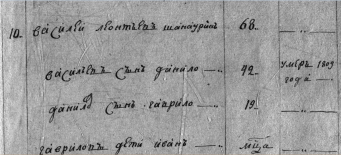 10. василеи леонтьевъ шанауринъ 68. — „ —
васильевъ сынъ данило — „ 42. умръ 1809 года — „
данилы сынъ гаврило — „ 19 — „ —
гавриловъ дети иванъ — „ мца — „ —